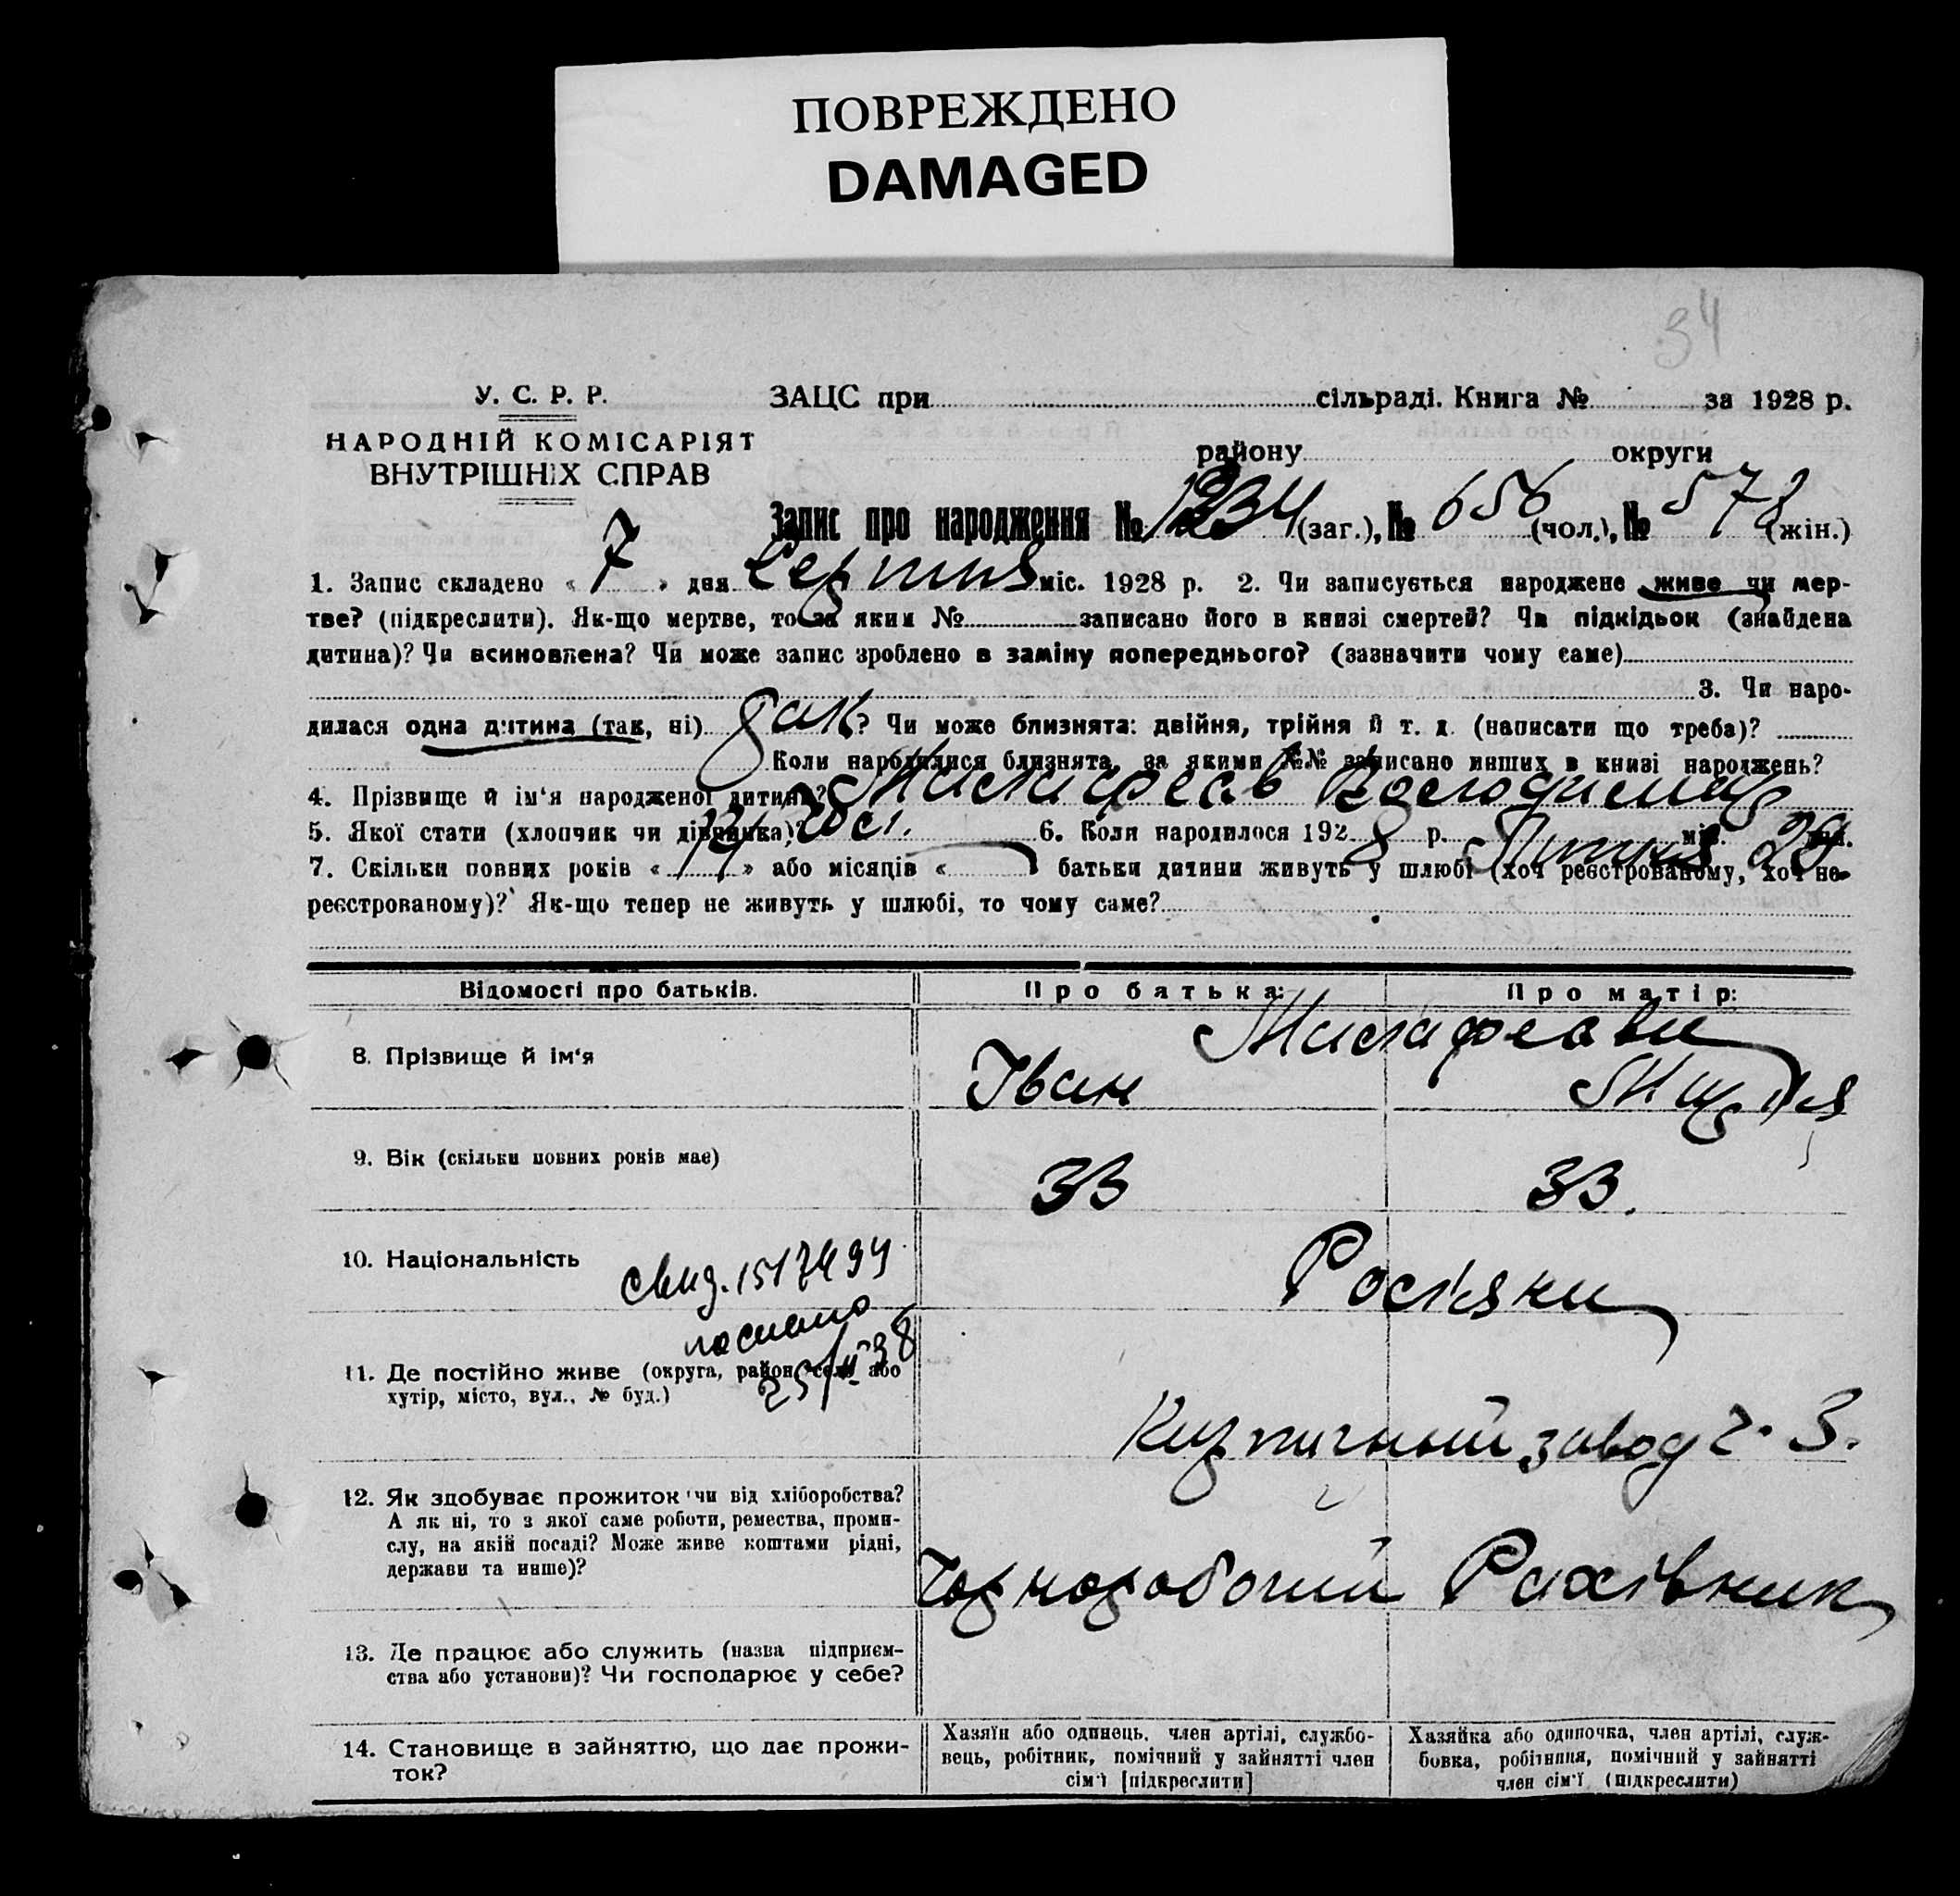 ПОВРЕЖДЕНО
DAMAGED
34
У. С. Р. Р.
НАРОДНІЙ КОМІСАРІЯТ
ВНУТРІШНІХ СПРАВ
ЗАЦС при сільраді. Книга № за 1928 р.
району округи
Запис про народження № 1234 (заг.), № 656 (чол.), № 578 (жін.)
1. Запис складено « 7 » дня Серпня міс. 1928 р. 2. Чи записується народжене живе чи мер-
тве? (підкреслити). Як-що мертве, то за яким № записано його в книзі смертей? Чи підкідьок (знайдена
дитина)? Чи всиновлена? Чи може запис зроблено в заміну попереднього? (зазначити чому саме)
3. Чи наро-
дилася одна дитина (так, ні) так? Чи може близнята: двійня, трійня й т. д. (написати що треба)?
Коли народилися близнята, за якими №№ записано инших в книзі народжень?
4. Прізвище й ім'я народженої дитини?
5. Якої стати (хлопчик чи дівчинка)? 6. Коли народилося 1928 р. Липня міс. дня.
7. Скільки повних років « » або місяців « » батьки дитини живуть у шлюбі (хоч реєстрованому, хоч не-
реєстрованому)? Як-що тепер не живуть у шлюбі, то чому саме?
Відомості про батьків. Про батька: Про матір:
8. Прізвище й ім'я
Іван
9. Вік (скільки повних років має) 33 33.
10. Національність Росіяни
свид. 1517494
послано
11. Де постійно живе (округа, район, село або
хутір, місто, вул., № буд.)
Кирпичный завод č. 3.
12. Як здобуває прожиток чи від хліборобства?
А як ні, то з якої саме роботи, ремества, проми-
слу, на якій посаді? Може живе коштами рідні,
держави та инше)?
Чорноробочий Рахівник
13. Де працює або служить (назва підприєм-
ства або установи)? Чи господарює у себе?
14. Становище в зайняттю, що дає прожи-
ток?
Хазяїн або одинець, член артілі, службо-
вець, робітник, помічний у зайнятті член
сім'ї [підкреслити]
Хазяйка або одиночка, член артілі, служ-
бовка, робітниця, помічний у зайнятті
член сім'ї (підкреслити)